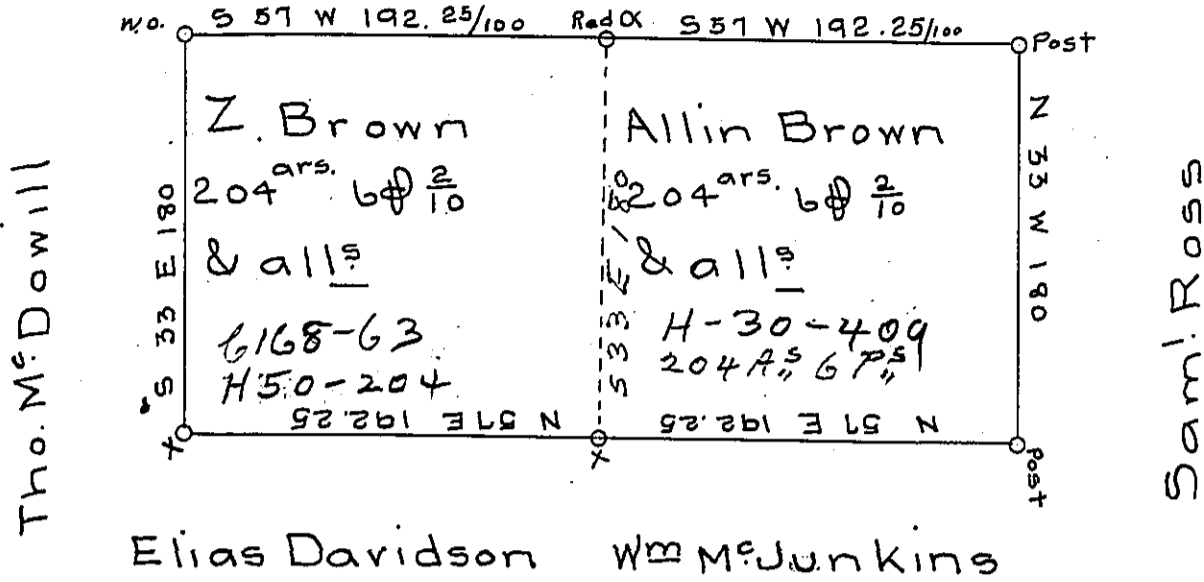 W.O. S 57 W 192.25/100 Red O S 57 W 192.25/100 Post
Tho. McDowill
S 33 E 180
Z. Brown
204 ars. 6 P 2/10
& alls
C168-63
H50-204
N 57 E 192.25
X
S 33 E 180
Allin Brown
204 ars. 6 P 2/10
& alls
H-30-409
204 As 6 Ps
N 57 E 192.25
X
N 33 W 180
Post
Saml. Ross
Elias Davidson
Wm McJunkins